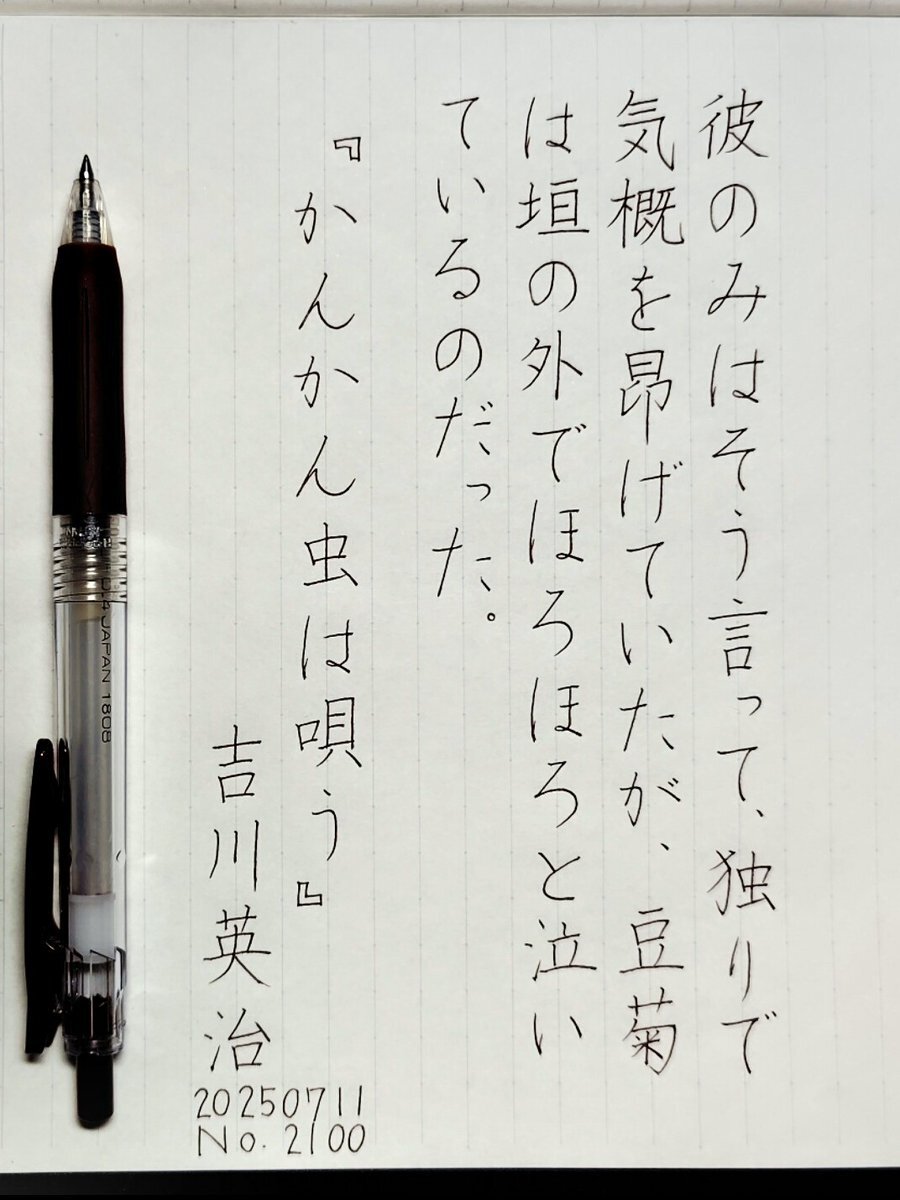 彼のみはそう言って、独りで
気概を昂げていたが、豆菊
は垣の外でほろほろと泣い
ているのだった。
『かんかん虫は唄う』
吉川英治
20250711
No. 2100
0.4 JAPAN 1808